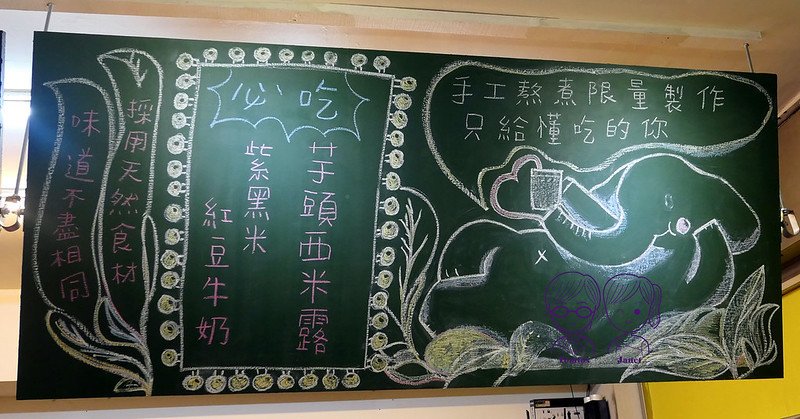 手工熬煮限量製作
只給懂吃的你
必吃
芋頭西米露
紫黑米
紅豆牛奶
採用天然食材
味道不盡相同
Janet